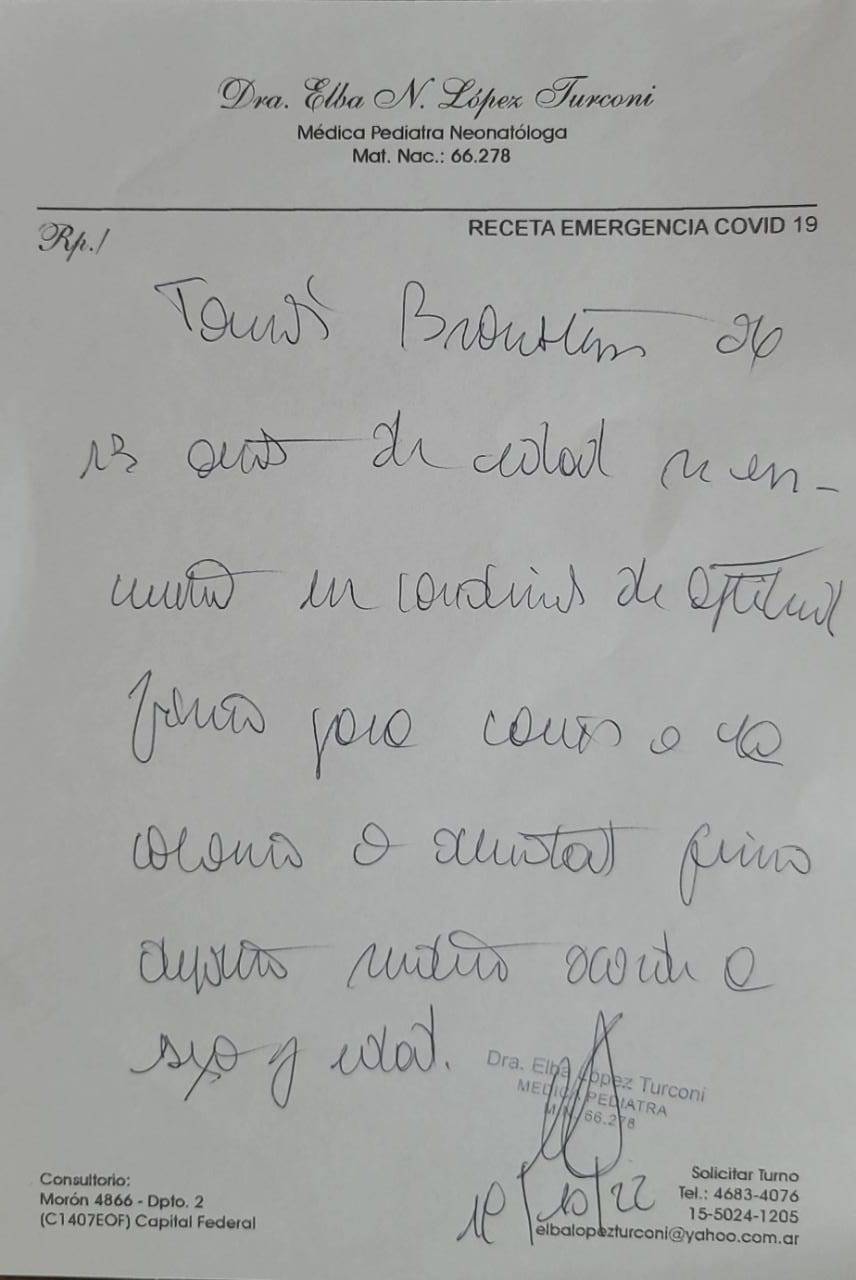 Dra. Elba N. López Turconi
Médica Pediatra Neonatóloga
Mat. Nac.: 66.278
Rp./
RECETA EMERGENCIA COVID 19
Tomás de
13 años de edad se en-
cuentra en condiciones de aptitud
física para a la
colonia o
acorde a
sexo y edad.
Dra. Elba Lopez Turconi
MEDICA PEDIATRA
M.N. 66.278
/10/22
Consultorio:
Morón 4866 - Dpto. 2
(C1407EOF) Capital Federal
Solicitar Turno
Tel.: 4683-4076
15-5024-1205
elbalopezturconi@yahoo.com.ar